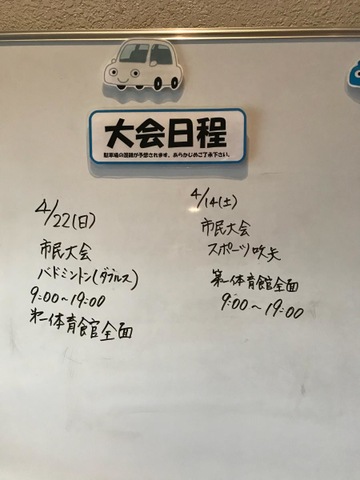 大会日程
駐車場の混雑が予想されます。あらかじめご了承下さい。
4/22(日)
市民大会
バドミントン(ダブルス)
9:00〜19:00
第一体育館全面
4/14(土)
市民大会
スポーツ吹矢
第一体育館全面
9:00〜19:00